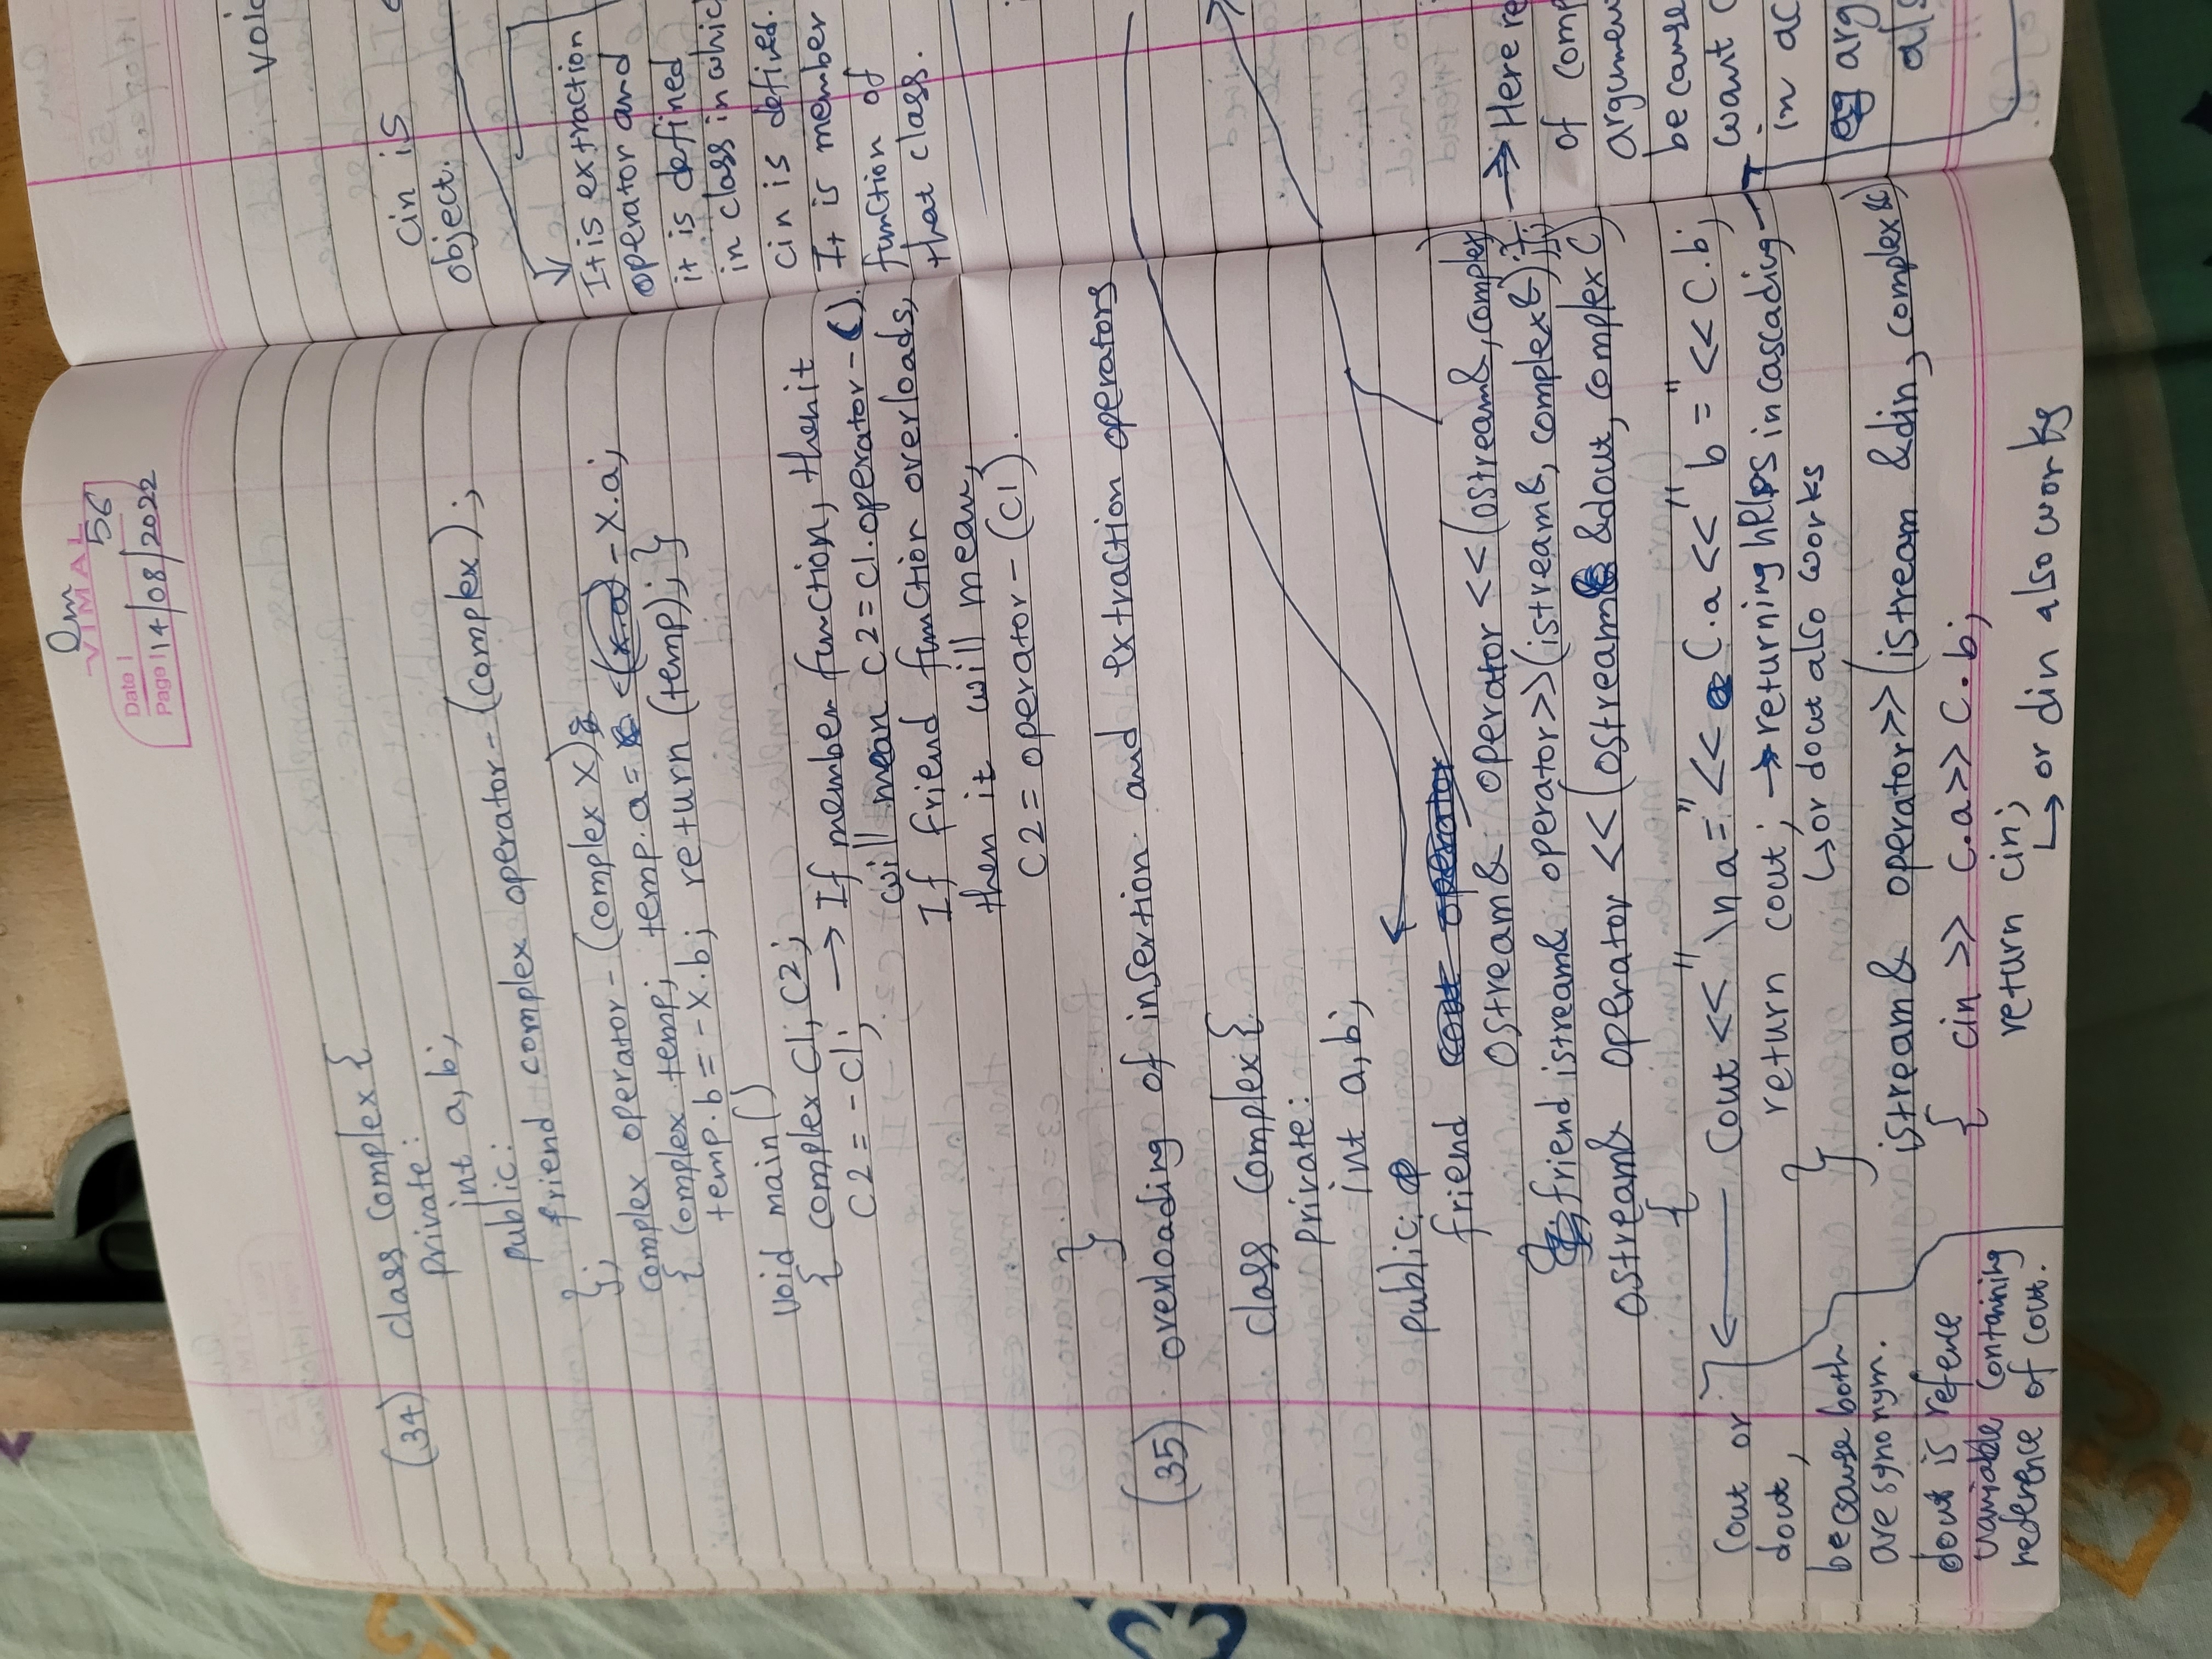 Om
VIMAL
56
Date |
Page | 14/08/2022
(34) class complex {
private :
int a, b;
public:
friend complex operator-(complex);
};
complex operator-(complex X)
{ complex temp; temp.a = -X.a;
temp.b = -X.b; return (temp); }
void main()
{ complex C1, C2;
C2 = -C1; → If member function, then it
will mean C2 = C1.operator-().
If friend function overloads,
then it will mean,
C2 = operator-(C1).
}
(35) overloading of insertion and extraction operators
class complex {
private :
int a, b;
public:
friend
ostream& operator <<(ostream&, complex)
friend istream& operator>>(istream&, complex&);
ostream& operator <<(ostream &dout, complex C)
{
cout << "\n a =" << C.a << " b = " << C.b;
return cout; → returning helps in cascading
↳ or dout also works
}
istream & operator>>(istream &din, complex &C)
{ cin >> C.a >> C.b;
return cin;
↳ or din also works
cout or
dout,
because both
are synonym.
dout is refence
variable contanining
reference of cout.
cin is
object.
It is extraction
operator and
it is defined
in class in which
cin is defined.
It is member
function of
that class.
→ Here
of
because
want
in